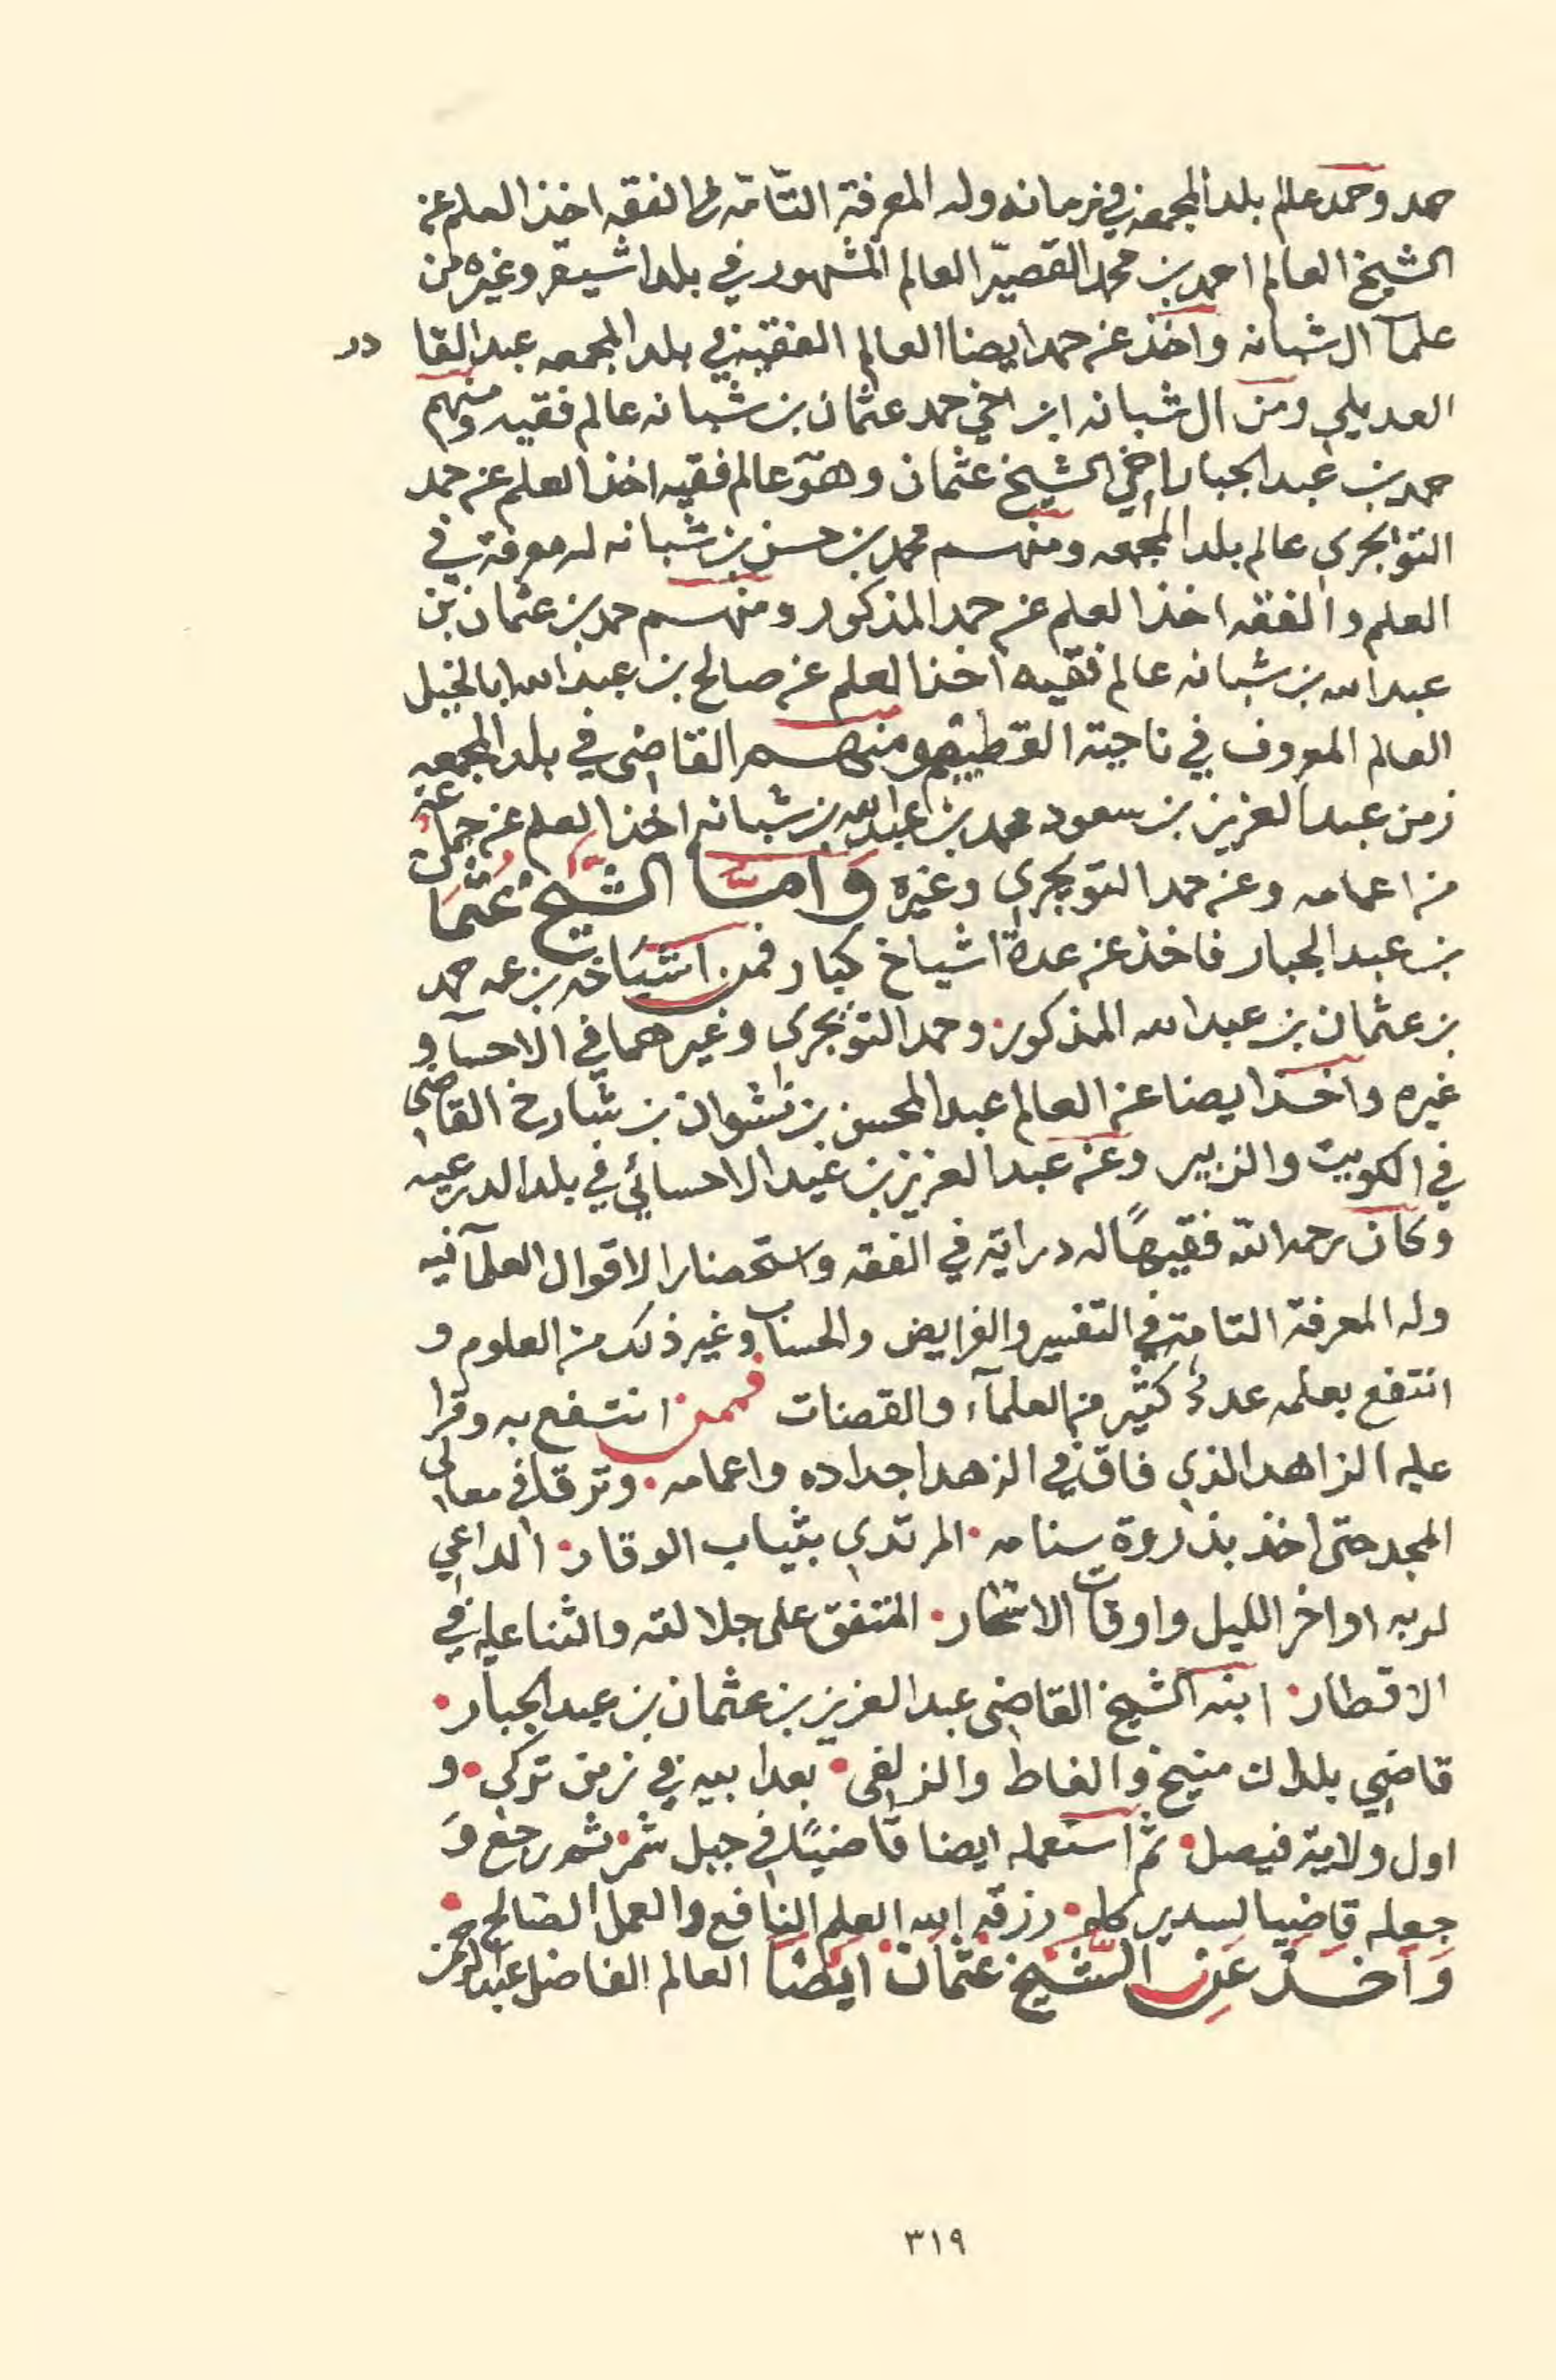 حمد وحمد عالم بلد المجمعه في زمانه وله المعرفة التّامّه في الفقه اخذ العلم عن
الشيخ العالم احمد بن محمد القصيّر العالم المشهور في بلد اشيقر وغيره من
علما ال شبانه واخذ عن حمد ايضا العالم الفقيه في بلد المجمعه عبد القادر
العديلي ومن ال شبانه ابن اخي حمد عثمان بن شبانه عالم فقيه ومنهم
حمد بن عبد الجبار اخي الشيخ عثمان وهو عالم فقيه اخذ العلم عن حمد
التويجري عالم بلد المجمعه ومنهم محمد بن حسن بن شبانه له معرفة في
العلم والفقه اخذ العلم عن حمد المذكور ومنهم حمد بن عثمان بن
عبد الله بن شبانه عالم فقيه اخذ العلم عن صالح بن عبد الله ابا الخيل
العالم المعروف في ناحية القصيم ومنهم القاضي في بلد المجمعه
زمن عبد العزيز بن سعود محمد بن عبد الله بن شبانه اخذ العلم عن جماعة
من اعمامه وعن حمد التويجري وغيره وَامَّا الشَّيخ عُثمَان
بن عبد الجبار فاخذ عن عدة اشياخ كبار فمن اشيَاخه بن عمه حمد
بن عثمان بن عبد الله المذكور. وحمد التويجري وغيرهما في الاحسآ و
غيره واخذ ايضا عن العالم عبد المحسن بن نشوان بن شارخ القاضي
في الكويت والزبير وعن عبد العزيز بن عيد الاحسائي في بلد الدرعيه
وكان رحمه الله فقيهًا له دراية في الفقه واستحضارا لاقوال العلمآ فيه
وله المعرفة التامة في التفسير والفرايض والحساب وغير ذلك من العلوم و
انتفع بعلمه عدد كثير من العلمآء والقضات فممن انتفع به وقرا
عليه الزاهد الذي فاق في الزهد اجداده واعمامه. وترقا في معالي
المجد حتى اخذ بذروة سنامه. المرتدي بثياب الوقار. الداعي
لربه اواخر الليل واوقات الاسحار. المتفق على جلالته والثنا عليه في
الاقطار. ابنه الشيخ القاضي عبد العزيز بن عثمان بن عبد الجبار.
قاضي بلدان منيخ والغاط والزلفى. بعد ابيه في زمن تركي. و
اول ولاية فيصل. ثم استعمله ايضا قاضيًا في جبل شمر. ثم رجع وَ
جعله قاضيا لسدير كله. رزقه الله العلم النافع والعمل الصالح.
وَاَخذَ عَن الشَّيخ عثمَان ايضًا العالم الفاضل عبد الرحمن
٣١٩